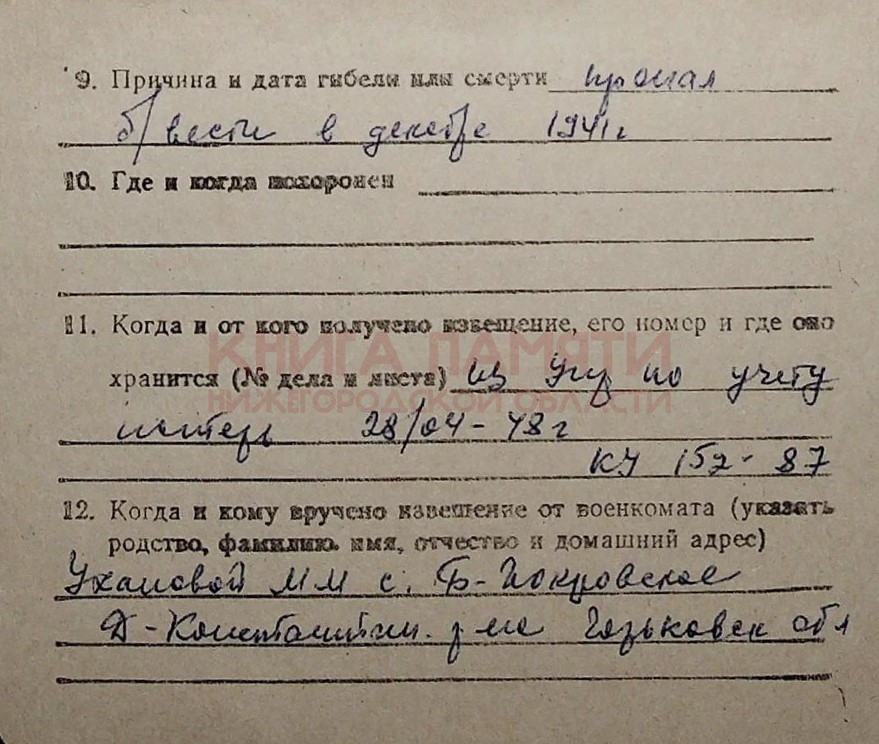 9. Причина и дата гибели или смерти пропал
б/вести в декабре 1941г
10. Где и когда похоронен
11. Когда и от кого получено извещение, его номер и где оно
КНИГА ПАМЯТИ
хранится (№ дела и листа) из Упр по учету
НИЖЕГОРОДСКОЙ ОБЛАСТИ
потерь 28/04-48г
КУ 152-87
12. Когда и кому вручено извещение от военкомата (указать
родство, фамилию, имя, отчество и домашний адрес)
Ухановой ММ с. Б-Покровское
Д-Константин. р-не Горьковск обл